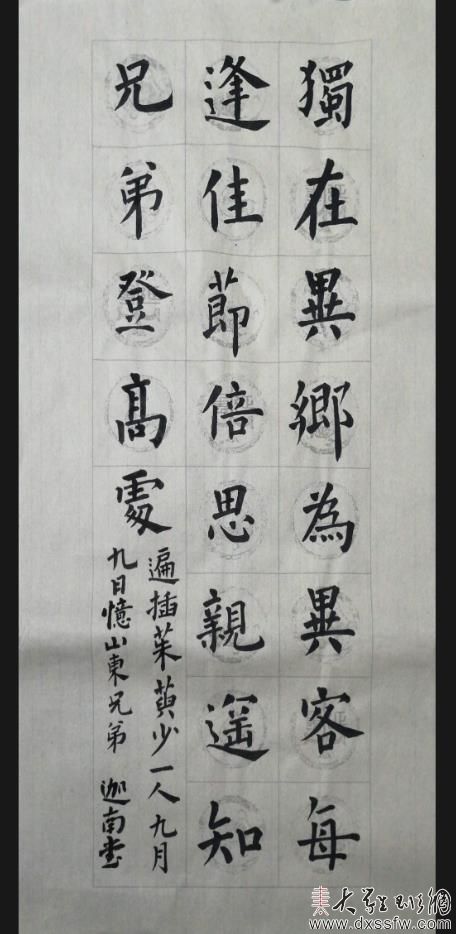 獨在異鄉為異客每
逢佳莭倍思親遥知
兄弟登髙處
遍插茱萸少一人九月
九日憶山東兄弟 迦南書
www.dxssfw.com